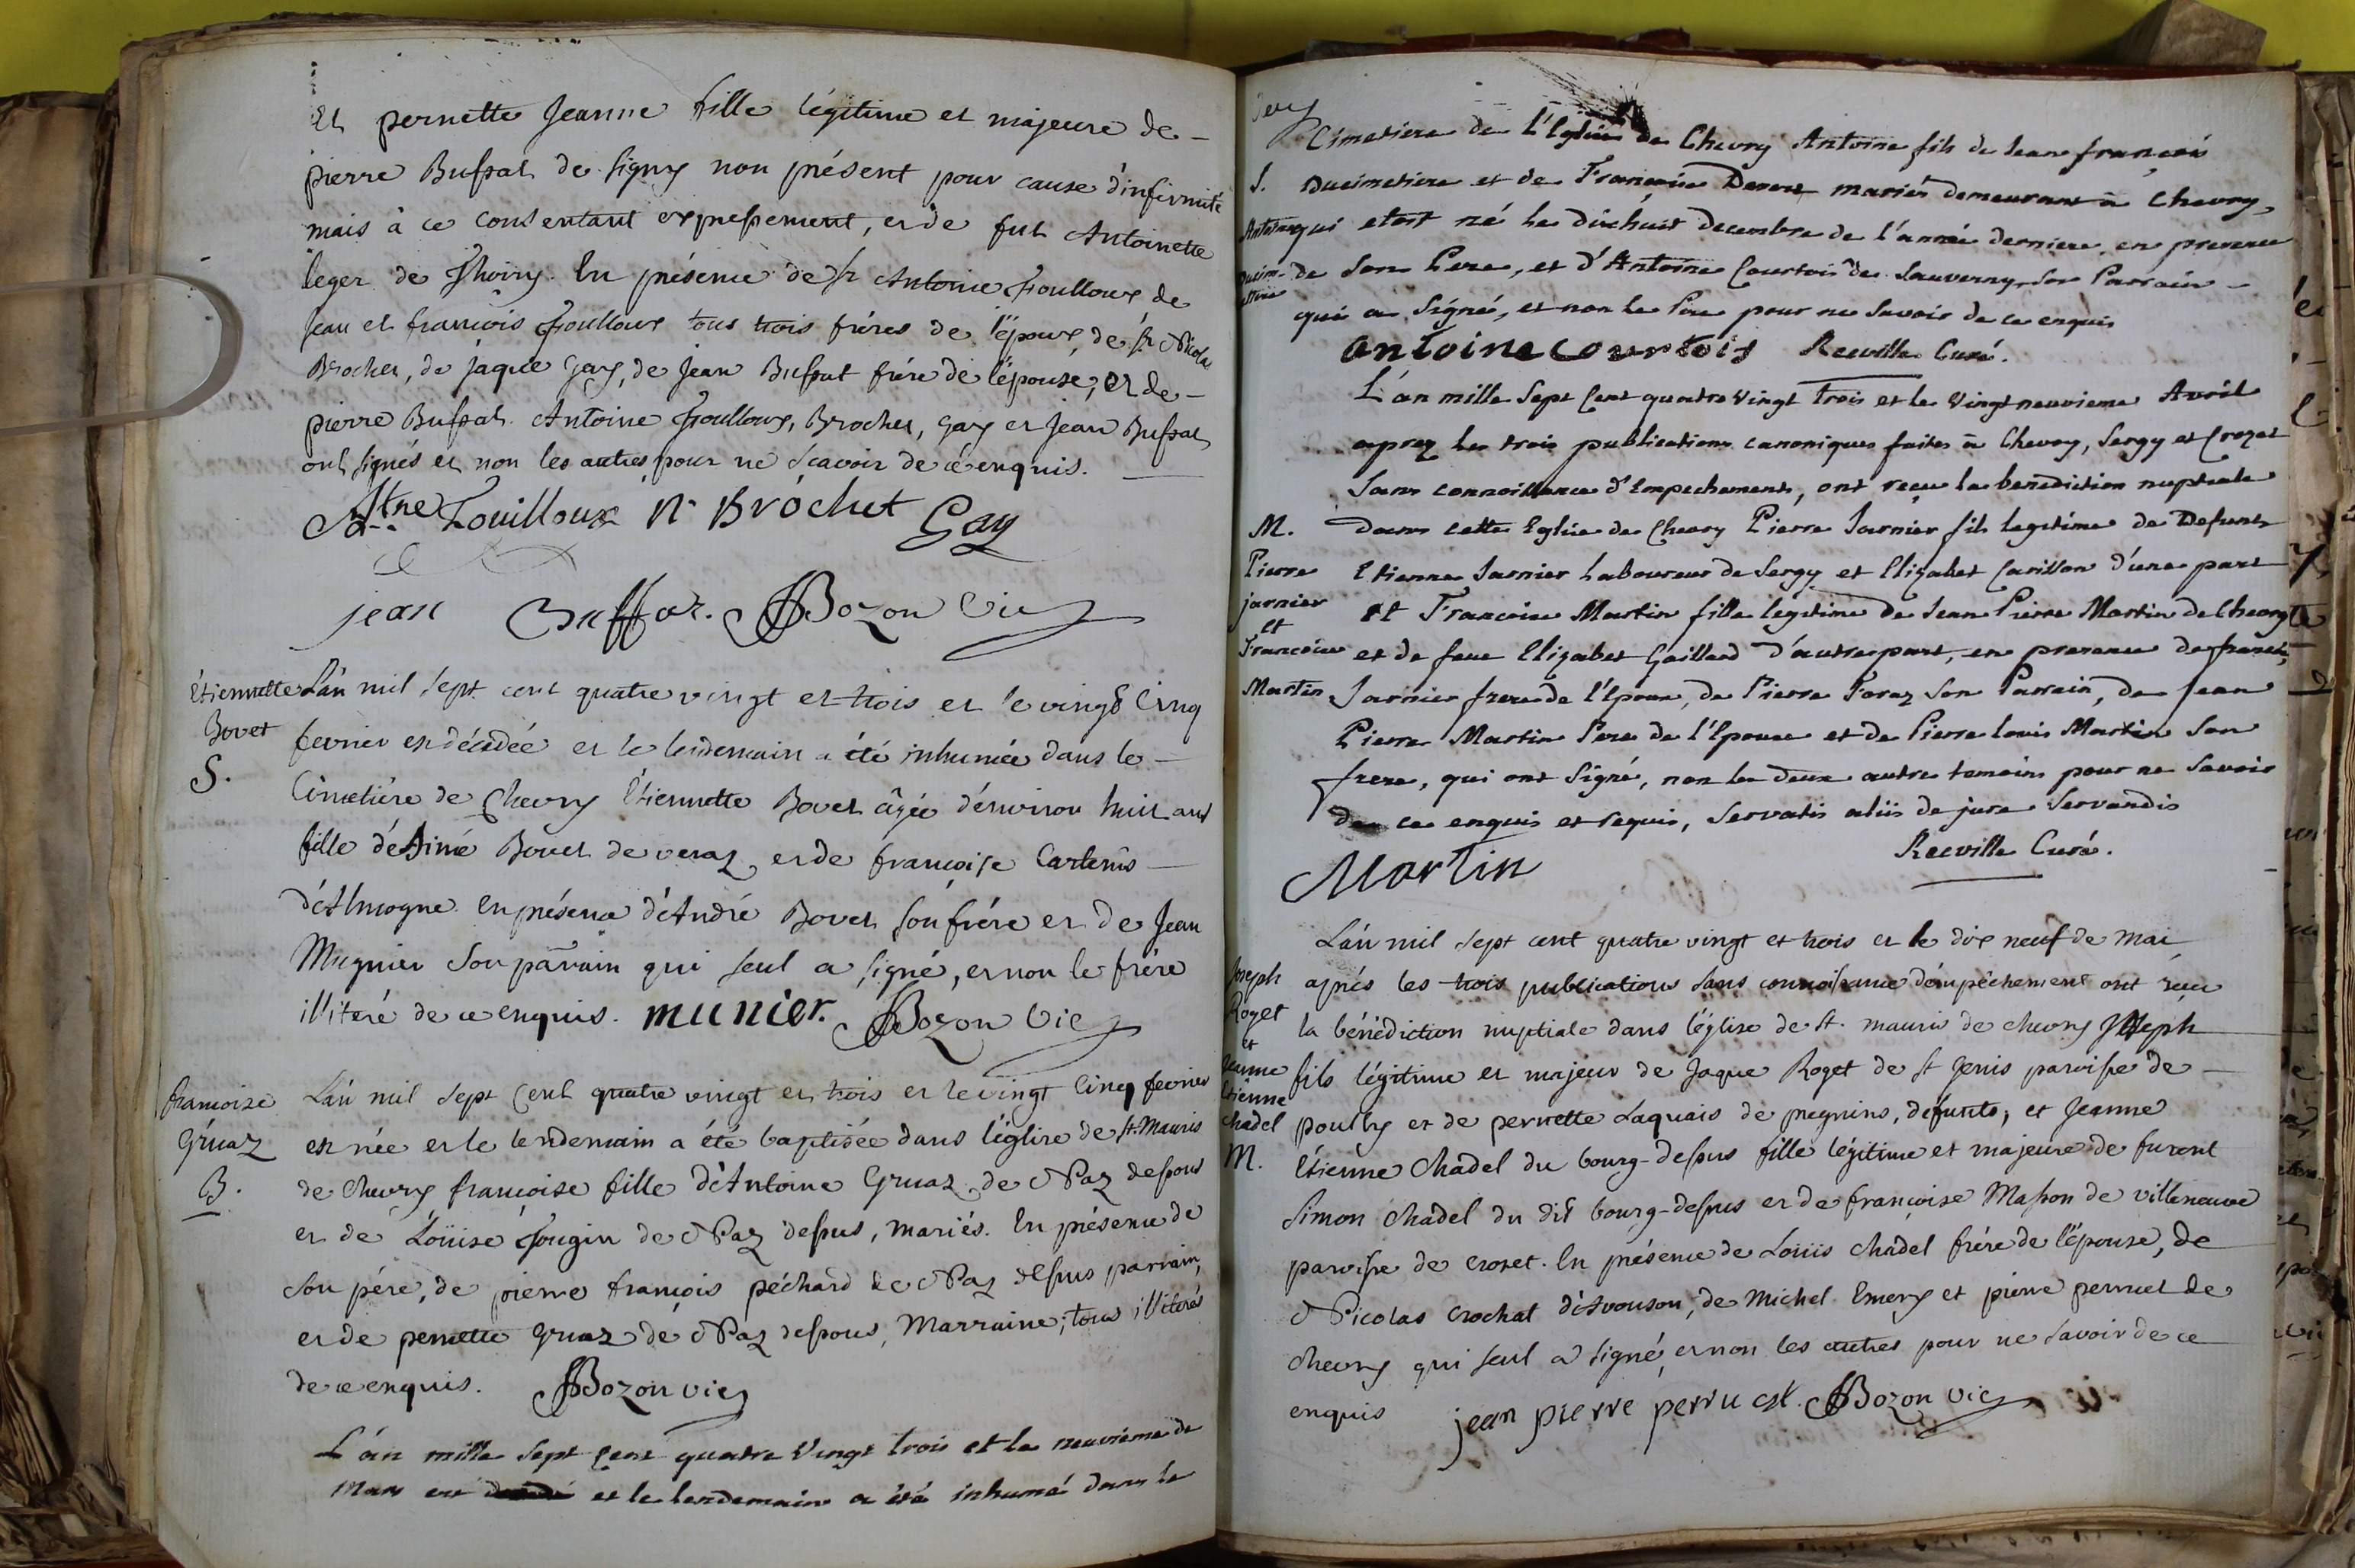 Et pernette Jeanne fille légitime et majeure de
pierre Bussat de signy non présent pour cause d'infirmité
mais à ce consentant expressement, et de fut Antoinette
leger de Thoiry. En présence de sr Antoine Fouilloux de
Jean et françois Fouilloux tous trois fréres de l'époux, de sr Nicolas
Brochet, de jaque Gay, de Jean Bussat frére de l'épouse, et de
pierre Bussat. Antoine Fouilloux, Brochet, Gay et Jean Bussat
ont signés et non les autres pour ne scavoir de ce enquis.
Atne Fouilloux N. Brochet Gay
jean Buffat. Bozon Vic
Étiennette
Bovet
S.
L'án mil sept cent quatre vingt et trois et le vingt Cinq
fevrier est décédée et le lendemain a été inhumée dans le
Cimetiére de Chevry Étiennette Bovet âgée d'environ huit ans
fille d'Aimé Bovet de veraz et de françoise
d'Almogne. En présence d'André Bovet son frére et de Jean
Mugnier son parrain qui seul a signé, et non le frére
illiteré de ce enquis. munier. Bozon Vic
francoise
Gruaz
B.
L'án mil sept cent quatre vingt et trois et le vingt Cinq fevrier
est née et le lendemain a été baptisée dans l'église de St. Mauris
de Chevry françoise fille d'Antoine Gruaz de Naz dessous
et de Loüise Fougin de Naz dessus, mariés. En présence de
son pére, de pierre françois péchard de Naz dessus parrain,
et de pernette Gruaz de Naz dessous, Marraine; tous illiterés
de ce enquis. Bozon vic
L'án mille sept Cent quatre Vingt trois et le neuvième de
Mars est décédé et le lendemain a été inhumé dans le
Cimetiere de l'Eglise de Chevry Antoine fils de Jean françois
S.
Antoine
Ducim-
etiere
Ducimetiere et de Françoise mariés demeurant à Chevry,
qui etoit né le dixhuit decembre de l'année derniere en presence
de son Pere, et d'Antoine Courtois de Sauverny son Parrain
qui a signé, et non le Pere pour ne savoir de ce enquis
antoine courtois Reeville Curé.
L'án mille sept Cent quatre Vingt trois et le Vingt neuvieme Avril
aprez les trois publications canoniques faites à Chevry, Sergy et Crozet
sans connoissance d'Empechements, ont reçu la benediction nuptiale
M.
Pierre
jarnier
et
Francoise
Martin
dans cette Eglise de Chevry Pierre Jarnier fils legitime de Defunts
Etienne Jarnier Laboureur de Sergy et Elizabet Carillon d'une part
et Francoise Martin fille legitime de Jean Pierre Martin de Chevry
et de feue Elizabet Gaillard d'autre part, en presence de francois
Jarnier frere de l'Epoux, de Pierre Foraz son Parrain, de Jean
Pierre Martin Pere de l'Epouse et de Pierre louis Martin son
frere, qui ont signé, non les deux autre temoins pour ne savoir
de ce enquis et requis, servatis aliis de jure servandis
Reeville Curé.
Martin
L'án mil sept cent quatre vingt et trois et le dix neuf de mai
Joseph
Roget
et
jeanne
Étienne
chadel
M.
aprés les trois publications sans connoissance d'empêchement ont reçu
la bénédiction nuptiale dans l'église de st. mauris de chevry Joseph
fils légitime et majeur de Jaque Roget de st Jenis paroisse de
pouilly et de pernette Laquais de pregnins, défunts; et Jeanne
Étienne Chadel du bourg-dessus fille légitime et majeure de furent
Simon chadel du dit bourg-dessus et de françoise Masson de villeneuve
paroisse de crozet. En présence de Loüis chadel frére de l'épouse, de
Nicolas crochat d'Avouson, de Michel Emery et pierre perruet de
chevry qui seul a signé, et non les autres pour ne savoir de ce
enquis jean pierre perruest. Bozon vic